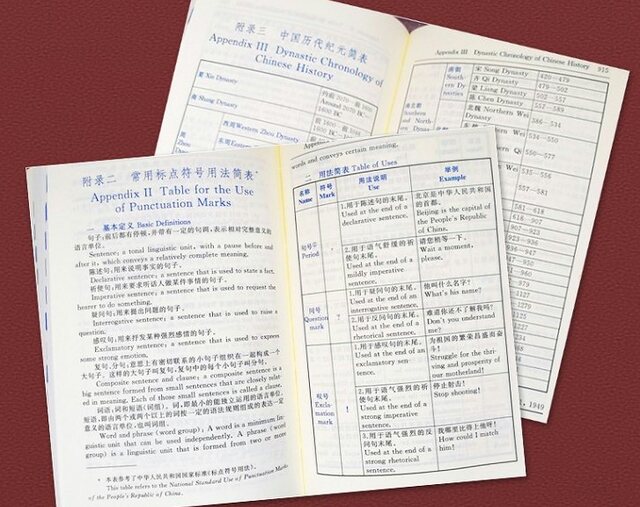 附录三 中国历代纪元简表
Appendix III Dynastic Chronology of
Chinese History
夏 Xia Dynasty
商 Shang Dynasty
周
西周 Western Zhou Dynasty
Appendix III Dynastic Chronology of Chinese History 915
南朝
Southern Dynasties
宋 Song Dynasty 420—479
齐 Qi Dynasty 479—502
梁 Liang Dynasty 502—557
陈 Chen Dynasty 557—589
北魏 Northern Wei
386—534
534—550
550—577
535—556
557—581
581—618
618—907
907—923
923—936
936—947
947—950
951—960
附录二 常用标点符号用法简表*
Appendix II Table for the Use
of Punctuation Marks
一 基本定义 Basic Definitions
句子:前后都有停顿,并带有一定的句调,表示相对完整意义的
语言单位。
Sentence: a tonal linguistic unit, with a pause before and
after it, which conveys a relatively complete meaning.
陈述句:用来说明事实的句子。
Declarative sentence: a sentence that is used to state a fact.
祈使句:用来要求听话人做某件事情的句子。
Imperative sentence: a sentence that is used to request the
hearer to do something.
疑问句:用来提出问题的句子。
Interrogative sentence: a sentence that is used to raise a
question.
感叹句:用来抒发某种强烈感情的句子。
Exclamatory sentence: a sentence that is used to express
some strong emotion.
复句、分句:意思上有密切联系的小句子组织在一起构成一个
大句子。这样的大句子叫复句,复句中的每个小句子叫分句。
Composite sentence and clause: a composite sentence is a
big sentence formed from small sentences that are closely relat-
ed in meaning. Each of those small sentences is called a clause.
词语:词和短语(词组)。词,即最小的能独立运用的语言单位。
短语,即由两个或两个以上的词按一定的语法规则组成的表达一定
意义的语言单位,也叫词组。
Word and phrase (word group): A word is a minimum lin-
guistic unit that can be used independently. A phrase (word
group) is a linguistic unit that is formed from two or more
* 本表参考了中华人民共和国国家标准《标点符号用法》。
This table refers to the National Standard Use of Punctuation Marks
of the People's Republic of China.
words and conveys certain meaning.
二 用法简表 Table of Uses
名称 Name
符号 Mark
用法说明 Use
举例 Example
句号
Period
1.用于陈述句的末尾。
Used at the end of a
declarative sentence.
北京是中华人民共和国
的首都。
Beijing is the capital of
the People's Republic
of China.
2.用于语气舒缓的祈
使句末尾。
Used at the end of a
mildly imperative
sentence.
请您稍等一下。
Wait a moment,
please.
问号
Question
mark
?
1.用于疑问句的末尾。
Used at the end of an
interrogative sentence.
他叫什么名字?
What's his name?
2.用于反问句的末尾。
Used at the end of a
rhetorical sentence.
难道你还不了解我吗?
Don't you understand
me?
叹号
Excla-
mation
mark
!
1.用于感叹句的末尾。
Used at the end of an
exclamatory sen-
tence.
为祖国的繁荣昌盛而奋
斗!
Struggle for the thri-
ving and prosperity of
our motherland!
2.用于语气强烈的祈
使句末尾。
Used at the end of a
strong imperative
sentence.
停止射击!
Stop shooting!
3.用于语气强烈的反
问句末尾。
Used at the end of a
strong rhetorical
sentence.
我哪里比得上他呀!
How could I match
him!